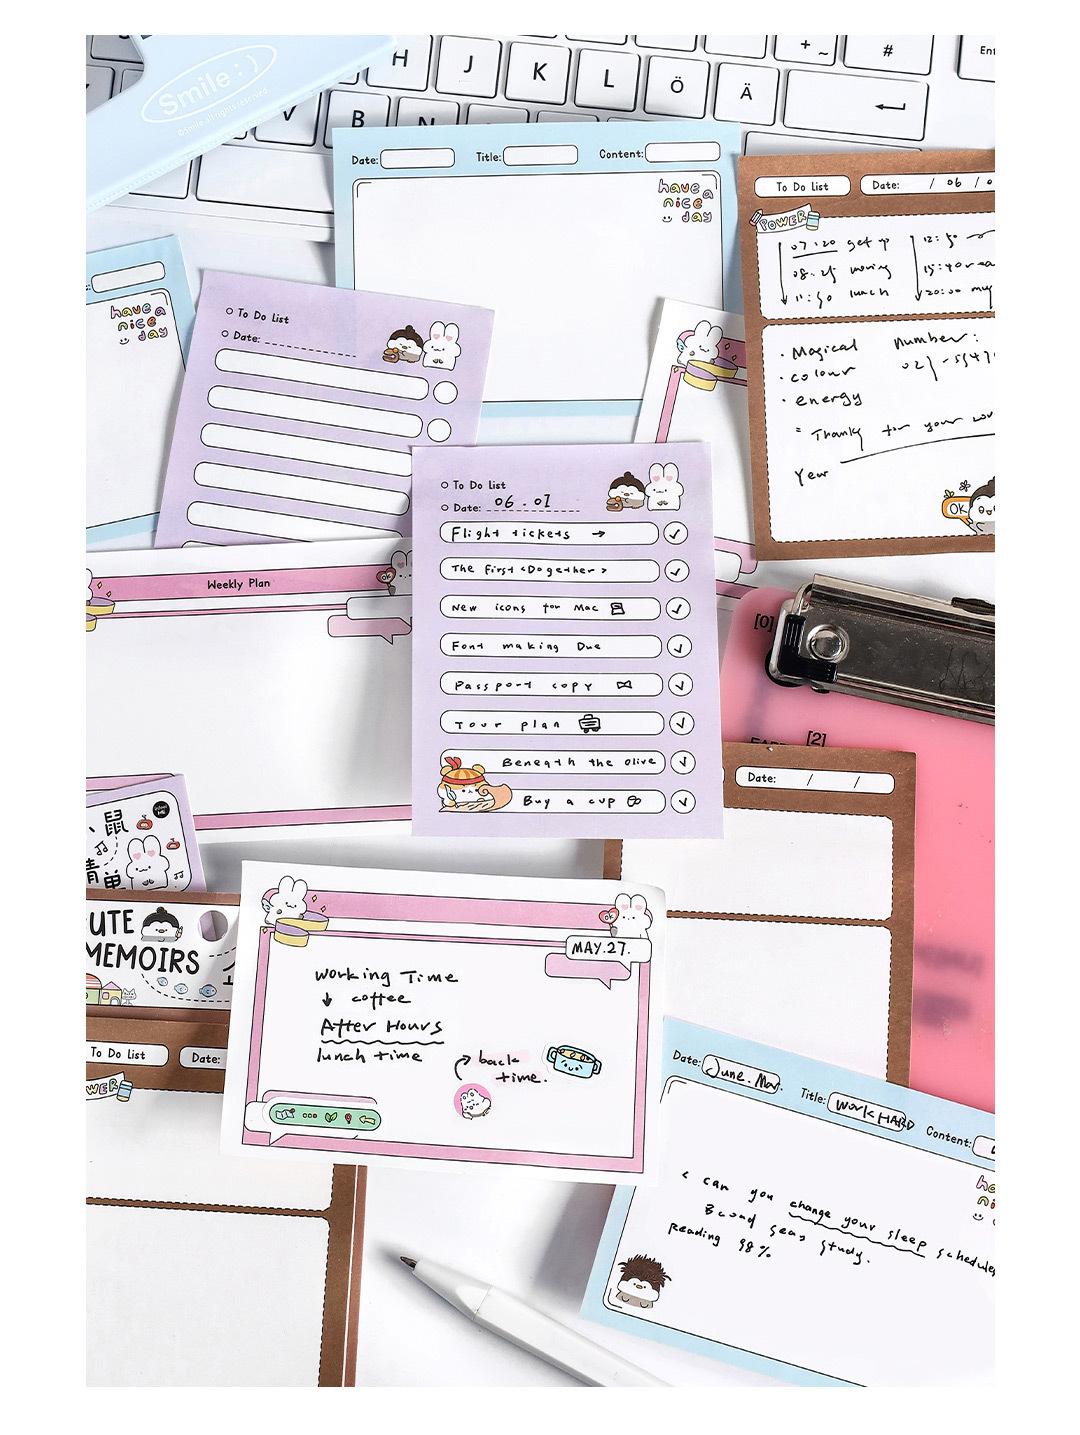 + ~
#
Ent
H
J
K
L
Ö
Ä
V
B
N
Smile : )
©Smile all rights reserved
Date:
Title:
Content:
have a
nice
day
To Do List
Date: / 06 /
POWER
07.20 get up
11:50 lunch
20:00
Magical
colour
energy
number:
Thank for your
OK
have a
nice
day
To Do List
Date:
To Do List
Date: 06.01
Flight tickets →
The First <Dogether>
New icons for Mac
Font making Due
Passport copy
Tour plan
Beneath the olive
Buy a cup
Weekly Plan
OK
[0]
[2]
Date: / /
鼠
清单
UTE
MEMOIRS
To Do List
Date:
WER
OK
MAY.27.
Working Time
↓ coffee
After Hours
lunch time
back
time.
Date: June.
Title: Work HARD
Content:
< can you change your sleep schedules
study.
Reading 98%